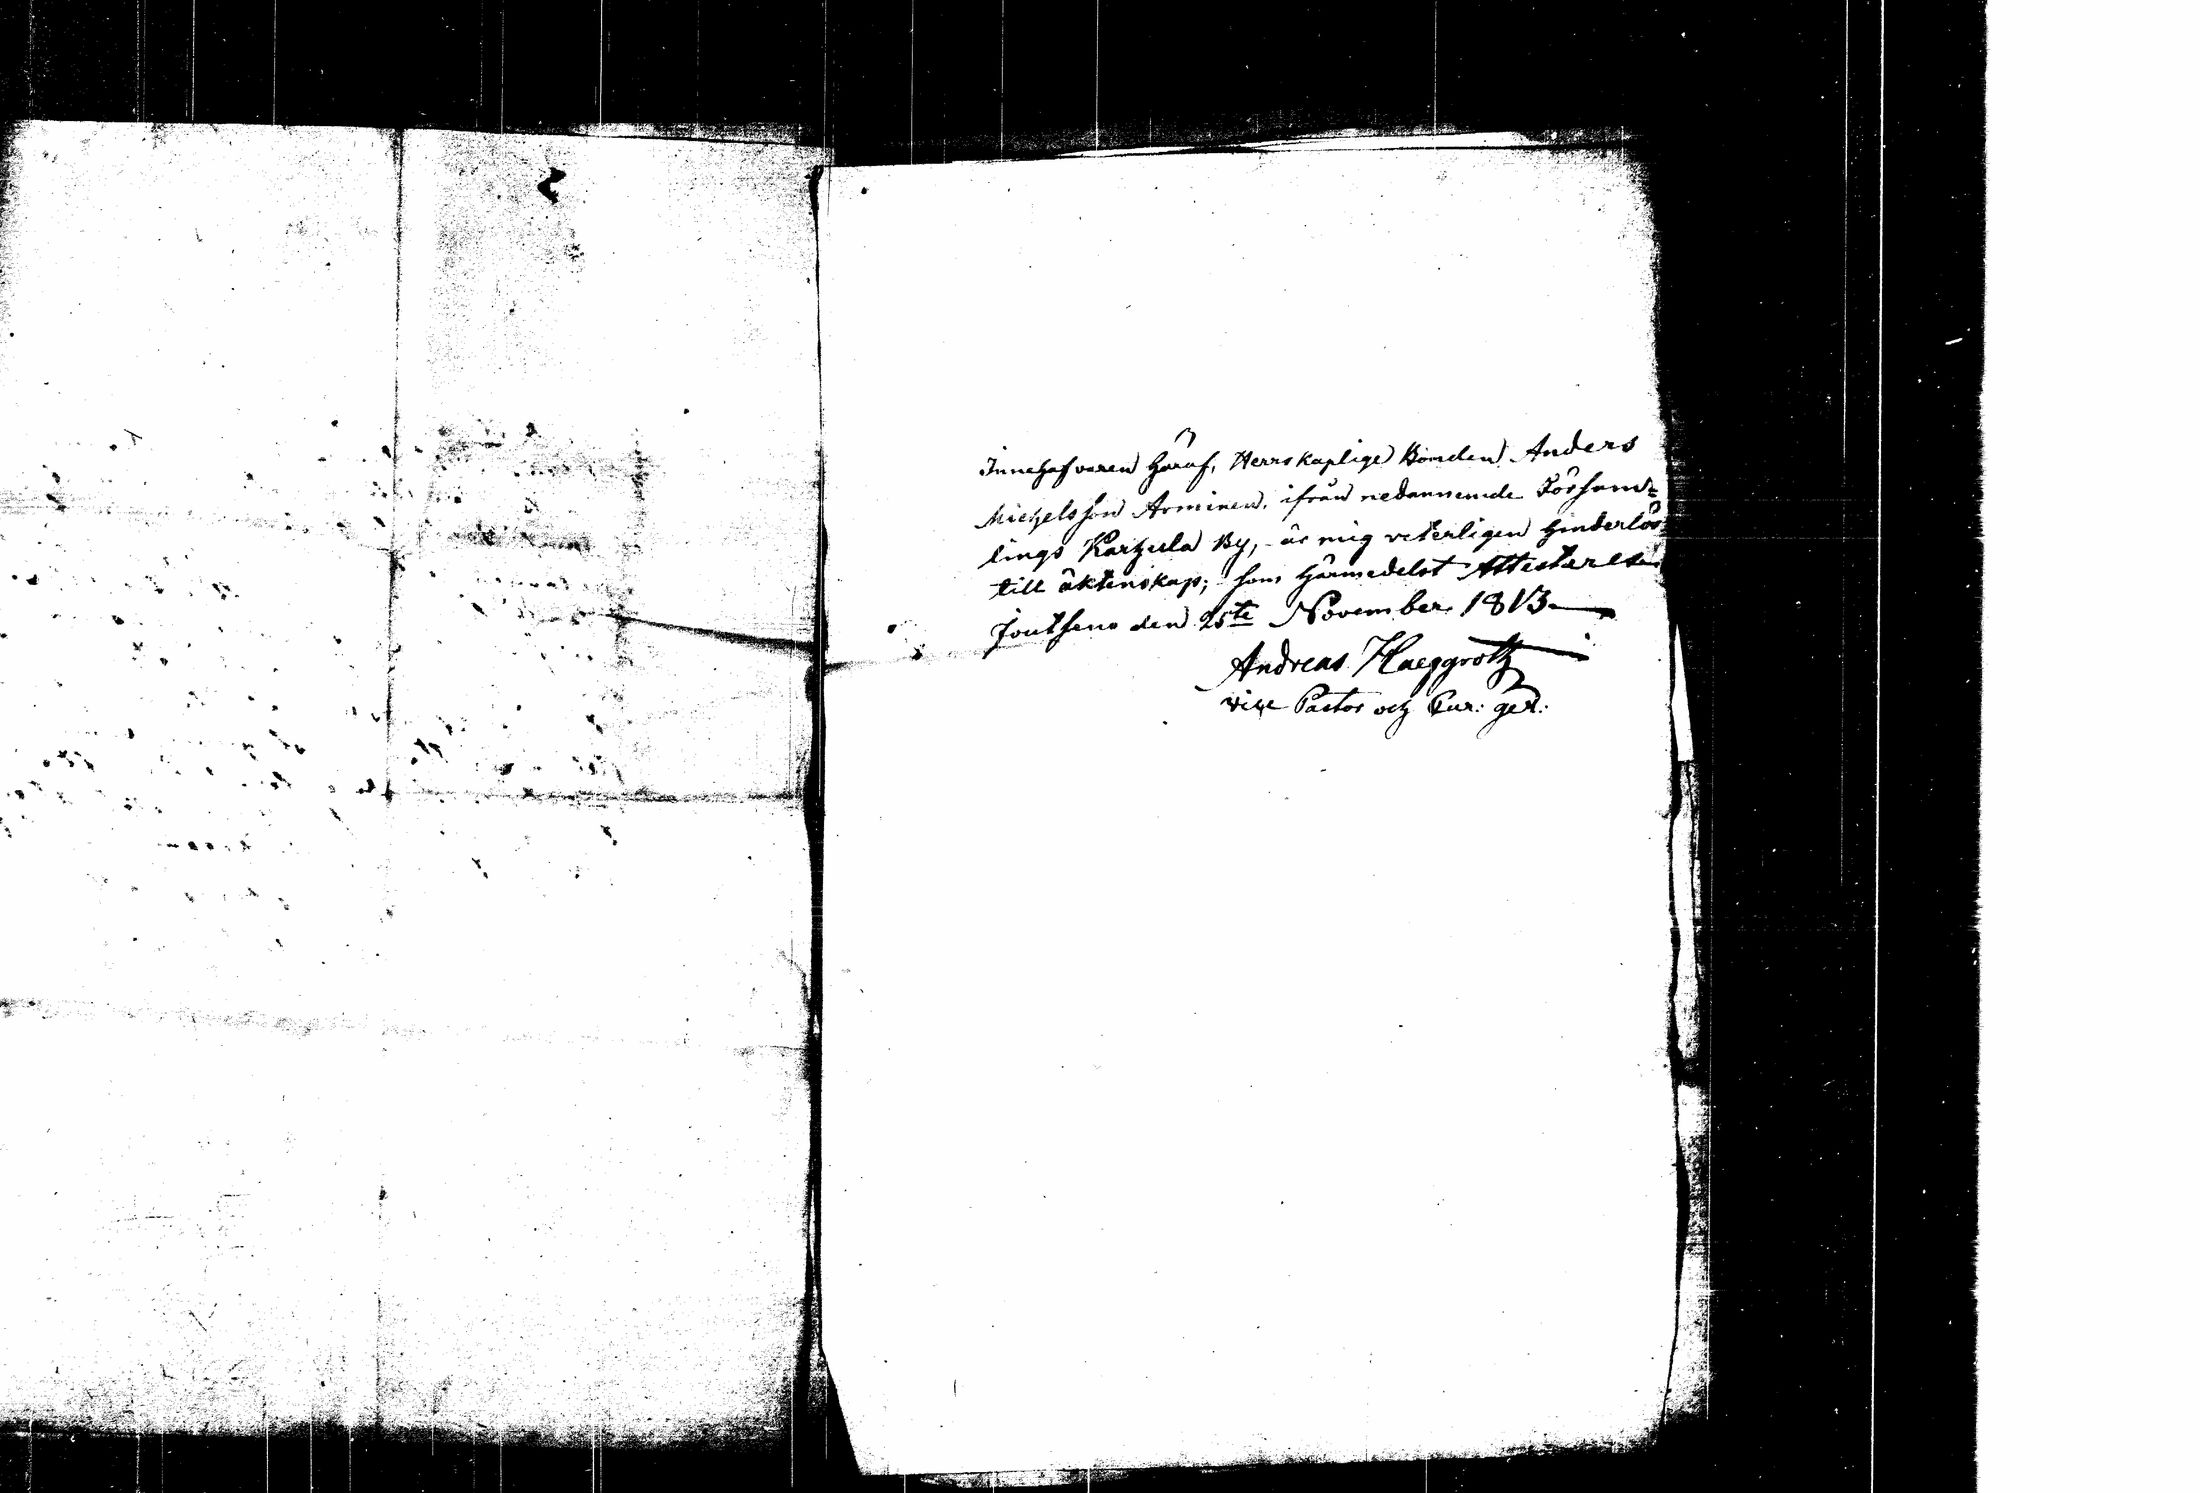 Innehafvaren häraf, Herrskaplige Bonden Anders
Michelsson Arminen, ifrån nedannemde Församl=
lings Karhula By, är mig veterligen hinderlös
till äktenskap; som härmedelst Attesteres.
Joutseno den 25te November 1813
Andreas Haeggroth
vice Pastor och Cur: ger: